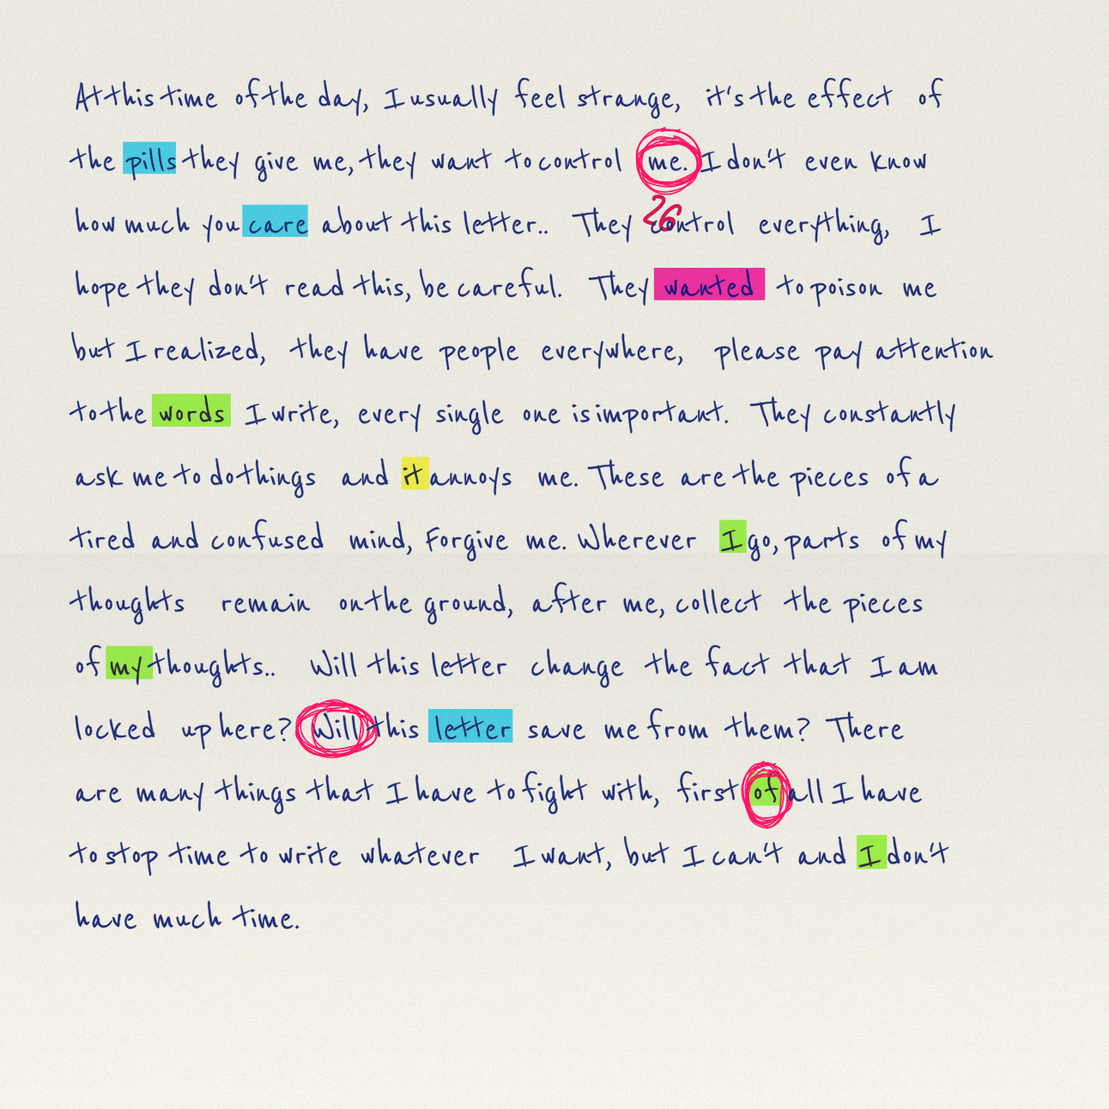 At this time of the day, I usually feel strange, it's the effect of
the pills they give me, they want to control me. I don't even know
how much you care about this letter.. They control everything, I
26
hope they don't read this, be careful. They wanted to poison me
but I realized, they have people everywhere, please pay attention
to the words I write, every single one is important. They constantly
ask me to do things and it annoys me. These are the pieces of a
tired and confused mind, Forgive me. Wherever I go, parts of my
thoughts remain on the ground, after me, collect the pieces
of my thoughts.. Will this letter change the fact that I am
locked up here? Will this letter save me from them? There
are many things that I have to fight with, first of all I have
to stop time to write whatever I want, but I can't and I don't
have much time.